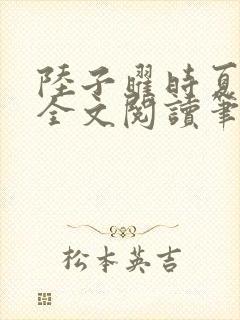 陸子曜時夏
全文閱讀筆
松本英吉